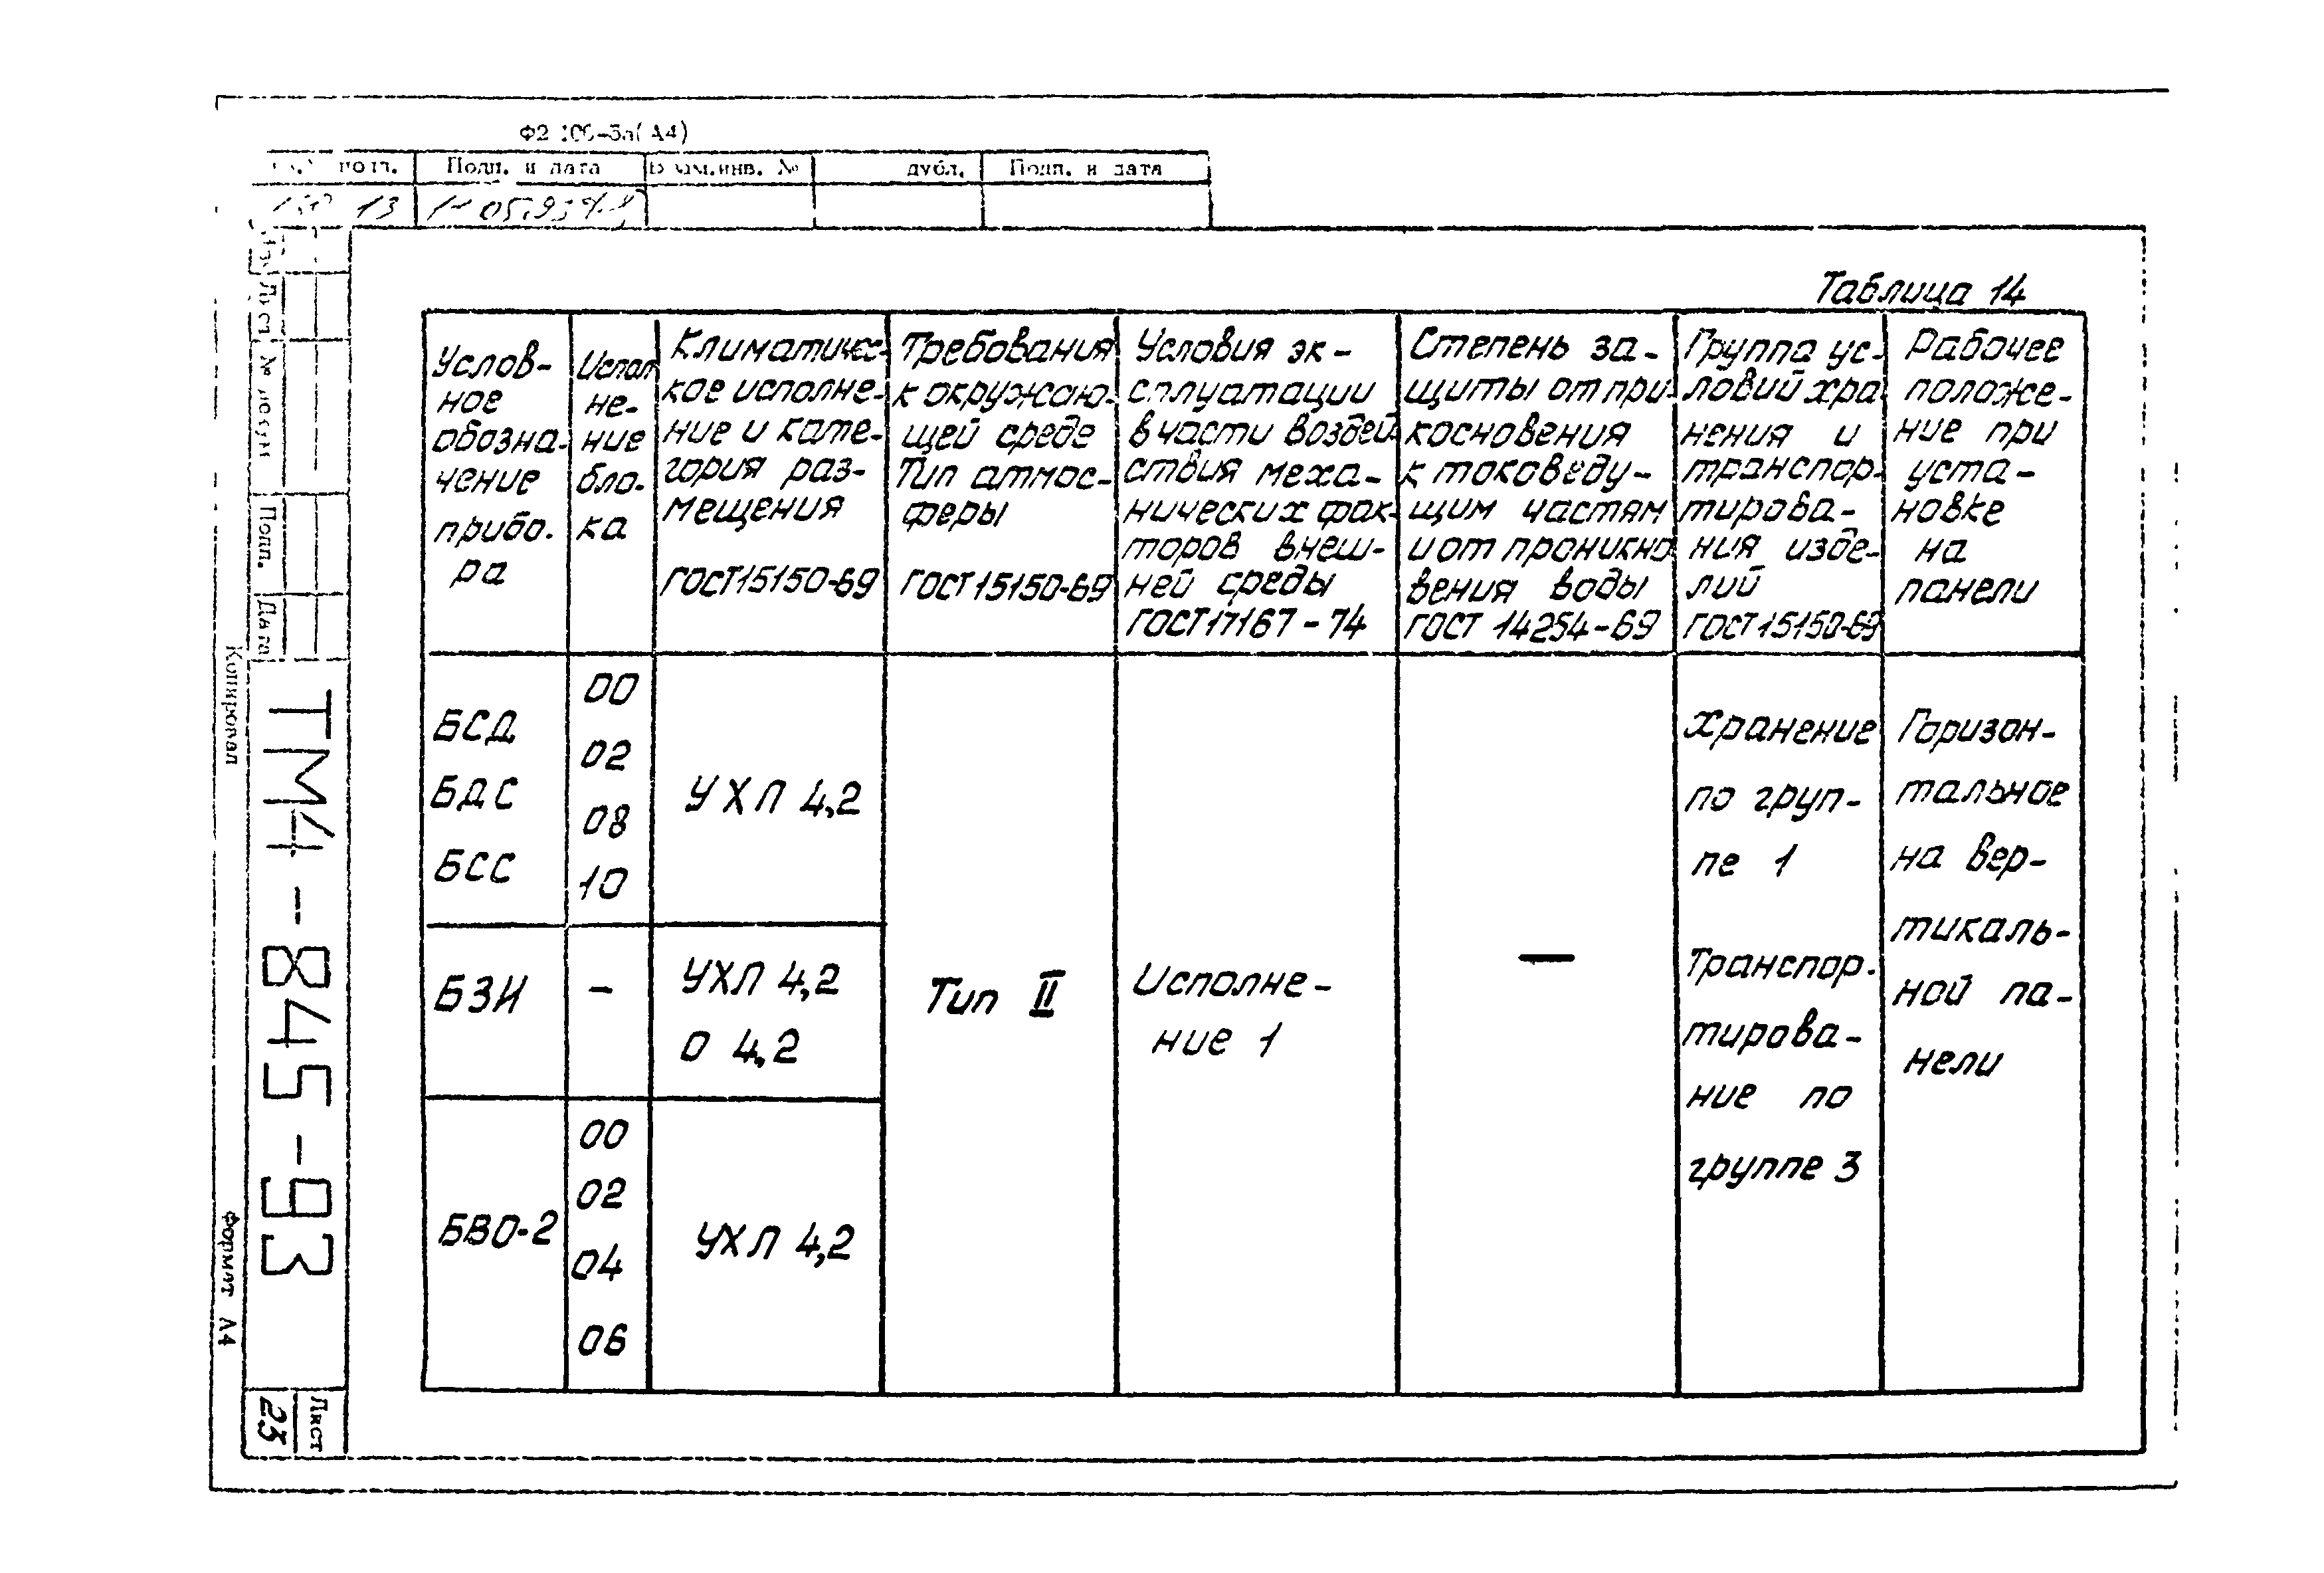 Ф2 106-5а(А4)
подл. Подп. и дата Взам.инв. № дубл. Подп. и дата
13
Таблица 14
Услов-
ное
обозна-
чение
прибо-
ра
Испол
не-
ние
бло-
ка
Климатичес-
кое исполне-
ние и кате-
гория раз-
мещения
ГОСТ15150-69
Требования
к окружаю-
щей среде
Тип атмос-
феры
ГОСТ15150-69
Условия эк-
сплуатации
в части воздей-
ствия меха-
нических фак-
торов внеш-
ней среды
ГОСТ17167-74
Степень за-
щиты от при-
косновения
к токоведу-
щим частям
и от проникно
вения воды
ГОСТ 14254-69
Группа ус-
ловий хра
нения и
транспор-
тирова-
ния изде-
лий
ГОСТ15150-69
Рабочее
положе-
ние при
уста-
новке
на
панели
БСД
БДС
БСС
00
02
08
10
УХЛ 4,2
БЗИ
-
УХЛ 4,2
О 4,2
БВО-2
00
02
04
06
УХЛ 4,2
Тип II
Исполне-
ние 1
—
Хранение
по груп-
пе 1
Транспор-
тирова-
ние по
группе 3
Горизон-
тальное
на вер-
тикаль-
ной па-
нели
Изм. Лист № докум Подп. Дата
ТМ4-845-93
Лист
23
Копировал
Формат А4